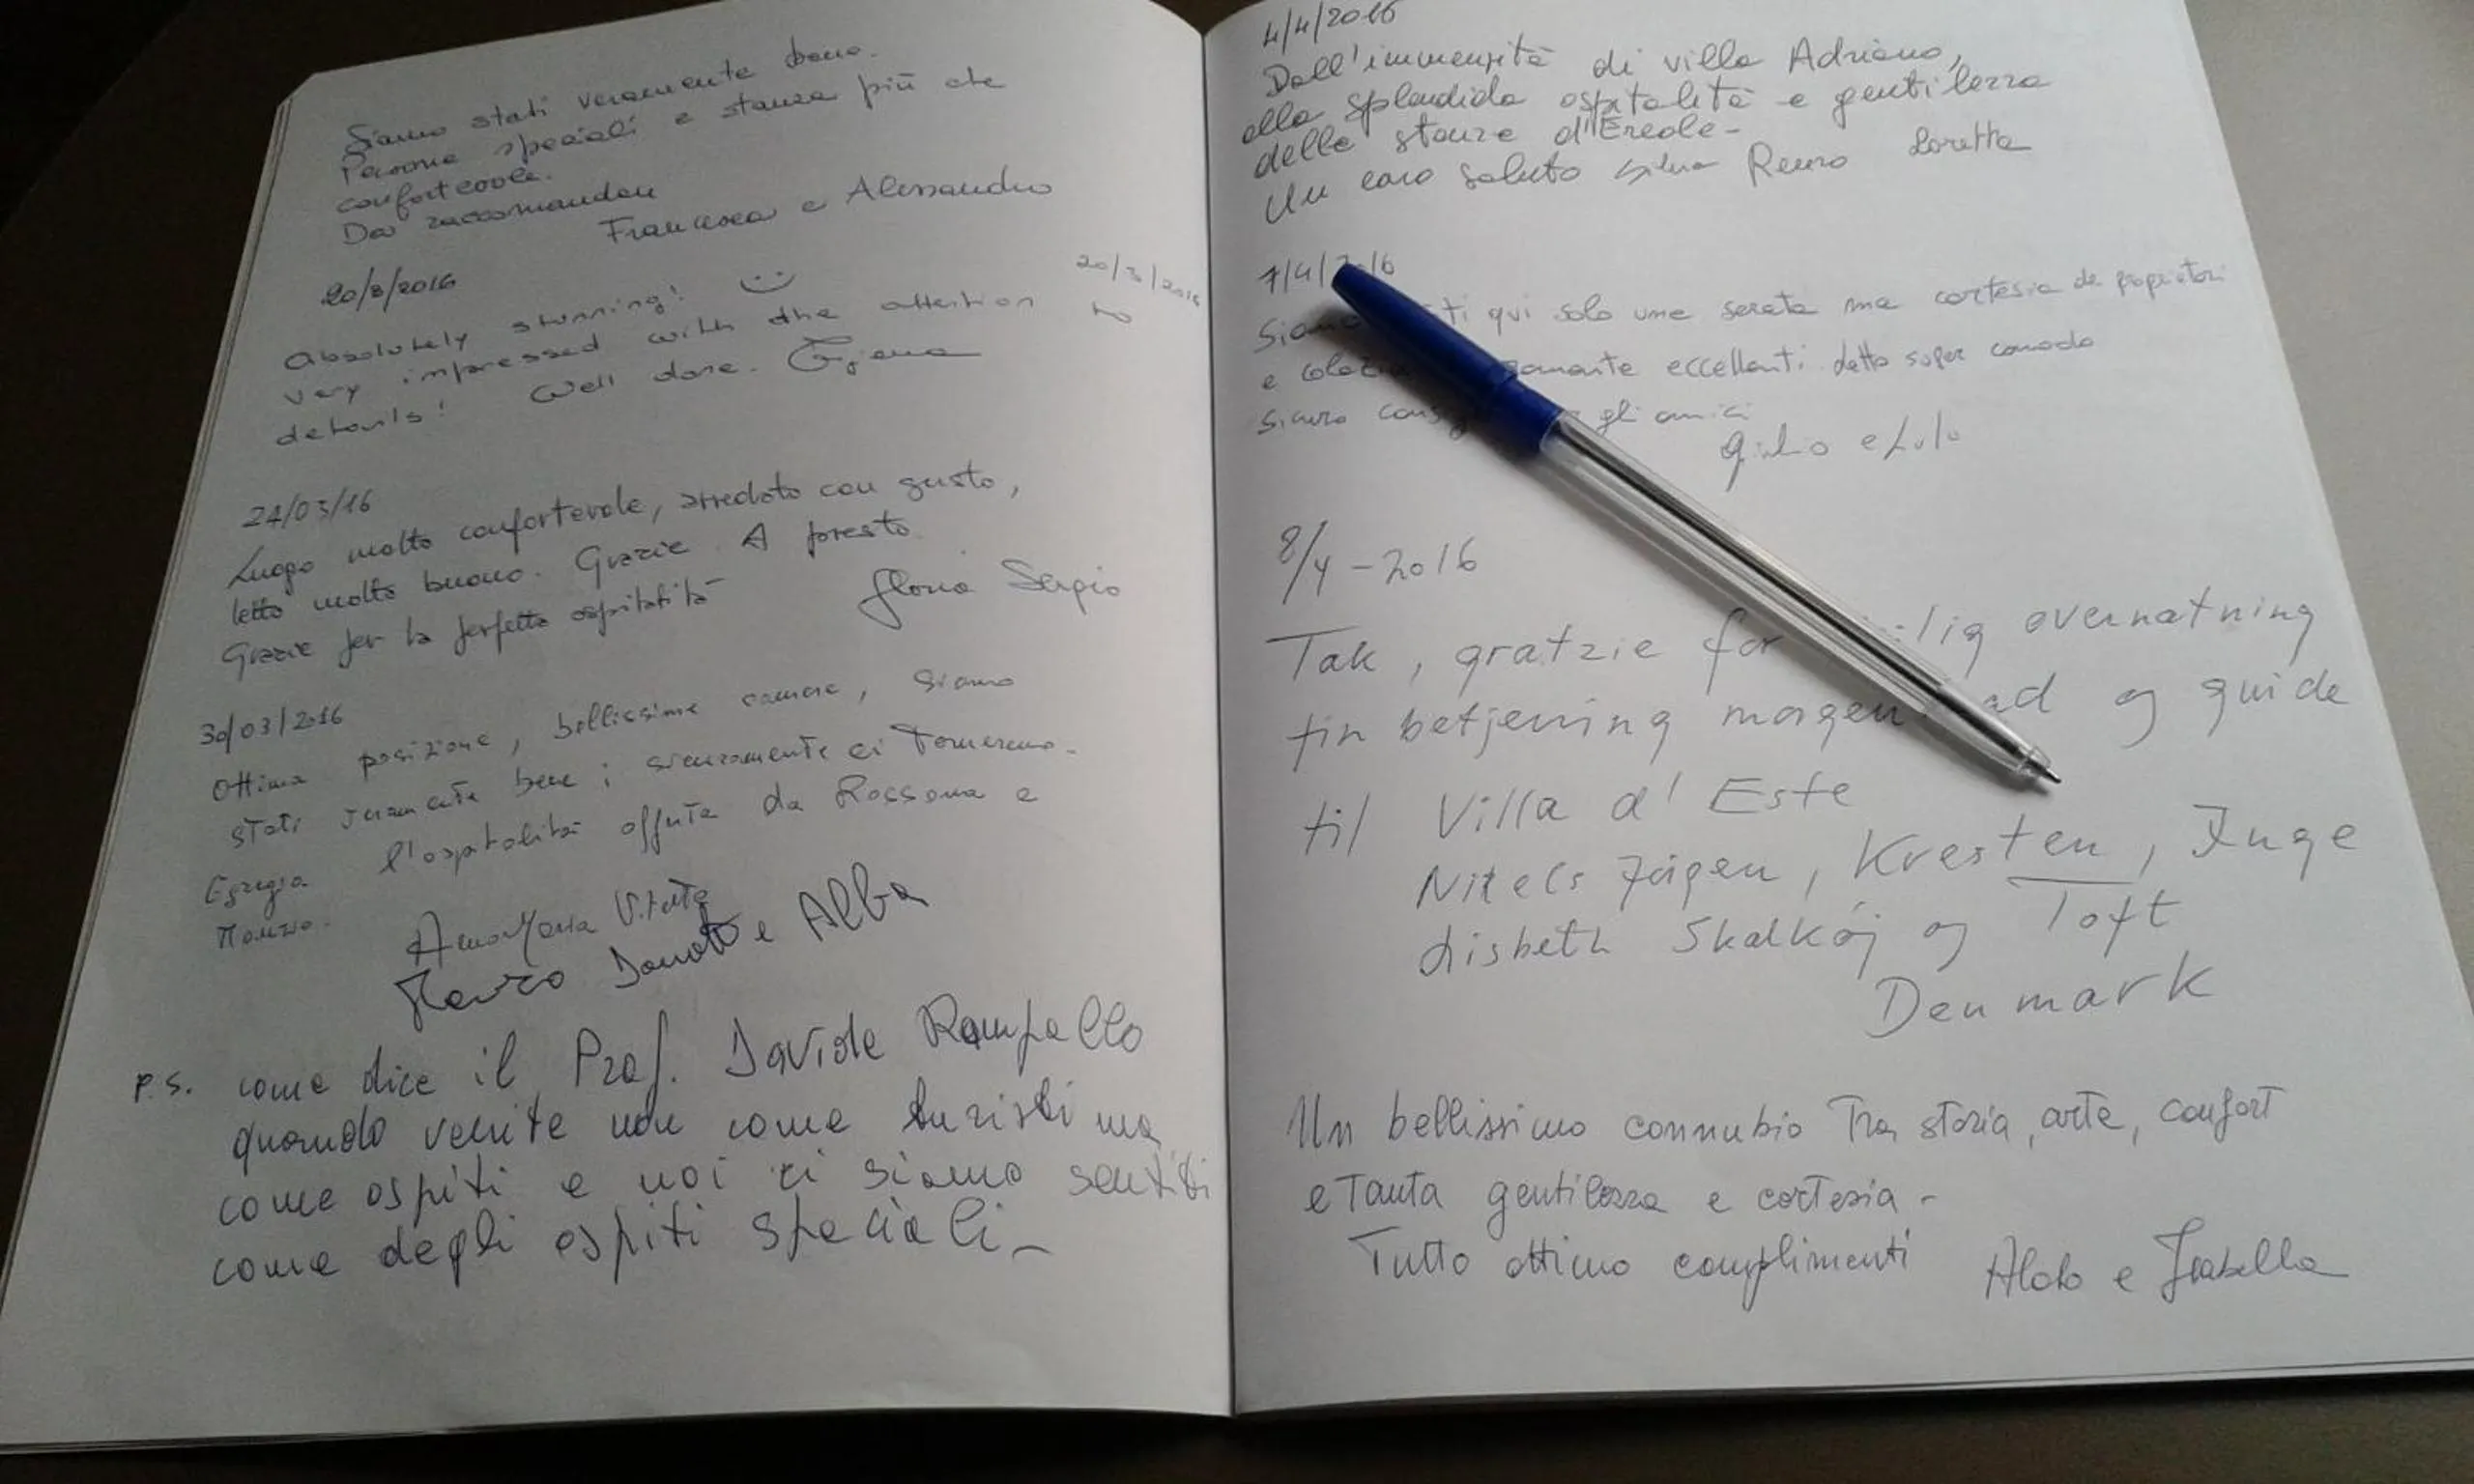 Siamo stati veramente bene.
Persone speciali e stanza più che
confortevole.
Da raccomandare
Francesca e Alessandro
20/3/2016
Absolutely stunning!
20/3/2016
very impressed with the attention to
details! Well done.
24/03/16
Luogo molto confortevole, arredato con gusto,
letto molto buono. Grazie. A presto
Grazie per la perfetta ospitalità
Gloria Sergio
30/03/2016
Ottima posizione, bellissime camere, siamo
stati veramente bene; sicuramente ci torneremo.
Egregia l'ospitalità offerta da Rossana e
AnnaMaria Vitale
Donato e Alba
P.S. come dice il Prof. Davide Rampello
quando venite non come turisti ma
come ospiti e noi ci siamo sentiti
come degli ospiti speciali-
4/4/2016
Dall'immensità di villa Adriano,
alla splendida ospitalità e gentilezza
delle stanze d'Ercole-
Un caro saluto Renzo Loretta
7/4/2016
qui solo una serata ma cortesia de propietari
e eccellenti. letto super comodo
sicuro gli amici
Giulio e Lulo
8/4-2016
Tak, gratzie for overnatning
fin betjening og guide
til Villa d'Este
Kresten, Inge
Lisbeth Skalkøj og Toft
Denmark
Un bellissimo connubio tra storia, arte, confort
e tanta gentilezza e cortesia -
Tutto ottimo complimenti Aldo e Isabella